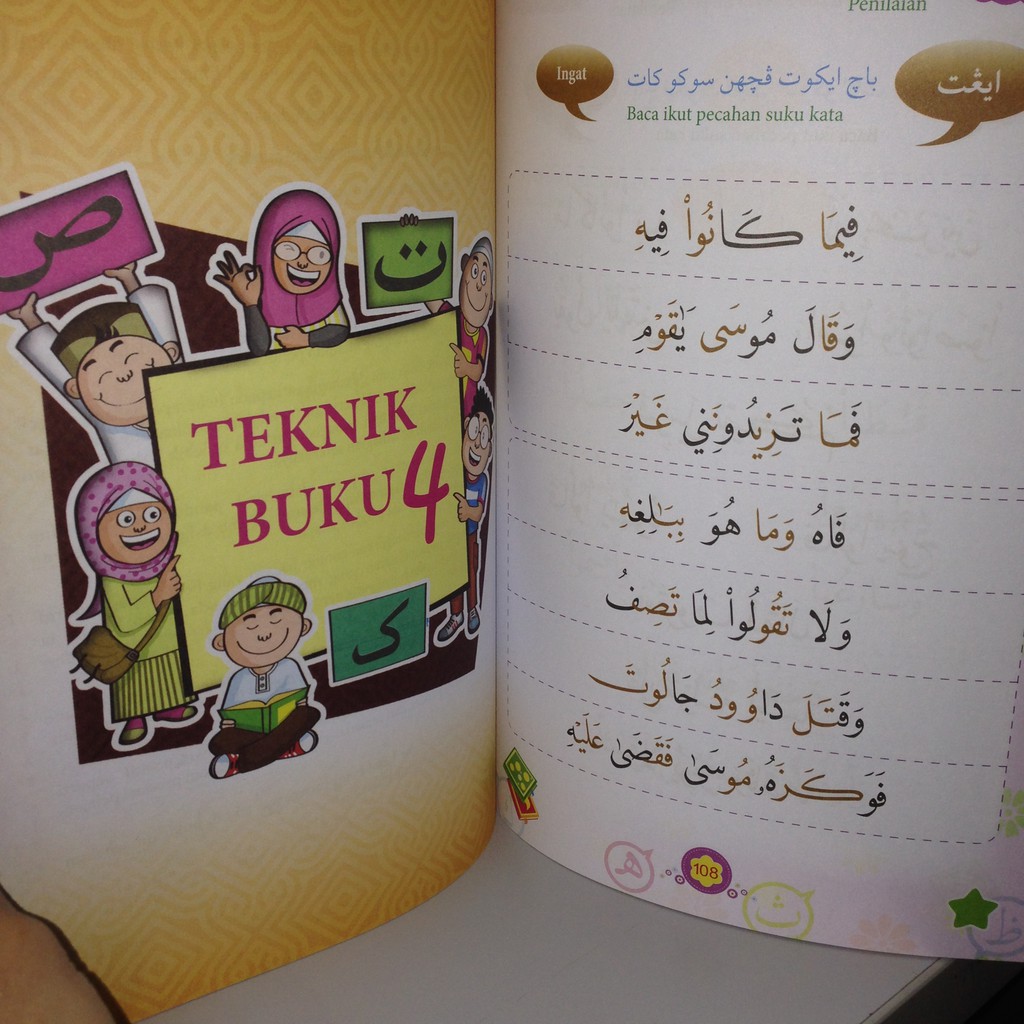 ص
ت
TEKNIK
BUKU 4
ک
Penilaian
Ingat
باچ ايکوت ڤچهن سوکو کات
ايڠت
Baca ikut pecahan suku kata
فِيمَا كَانُوا۟ فِيهِ
وَقَالَ مُوسَى يَٰقَوْمِ
فَمَا تَزِيدُونَنِي غَيْرَ
فَاهُ وَمَا هُوَ بِبَٰلِغِهِ
وَلَا تَقُولُوا۟ لِمَا تَصِفُ
وَقَتَلَ دَاوُودُ جَالُوتَ
فَوَكَزَهُۥ مُوسَىٰ فَقَضَىٰ عَلَيْهِ
ه
108
ث
ظ